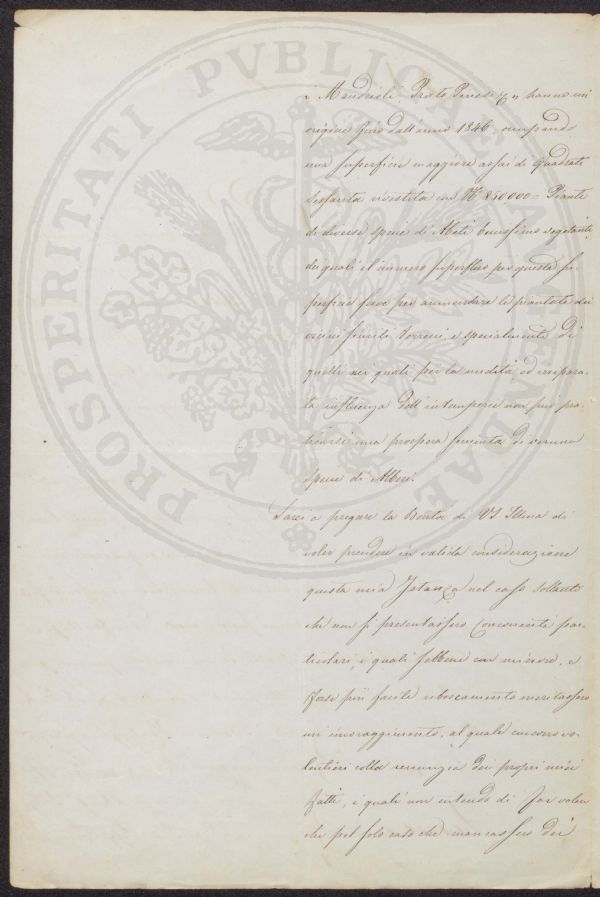 PROSPERITATI PVBLICAE AVGENDAE
Mandrioli, Prato Penesi &c hanno un'
origine fino dall'anno 1846 occupando
una superficie maggiore assai di quadrati
Sessanta rivestita con N. 850,000= Piante
di diverse specie di Abeti benissimo vegetanti,
dei quali il numero superfluo per questa su-
perficie serve per aumentare le piantate dei
vicini terreni, e specialmente di
quelli nei quali per la nudità ed
influenza dell'intemperie non può pra-
ticarsi una prospera di veruna
specie di Alberi.
Sarei a pregare la Bontà di VS Illma di
voler prendere in valida considerazione
questa mia Istanza nel caso soltanto
che non si presentassero Concorrenti par-
ticolari, i quali sebbene con minore, e
forse più facile rboscamento meritassero
un incoraggimento; al quale concorro vo-
lentieri colla renunzia dei propri miei
fatti, i quali non intendo di far valere
che pel solo caso che mancassero dei